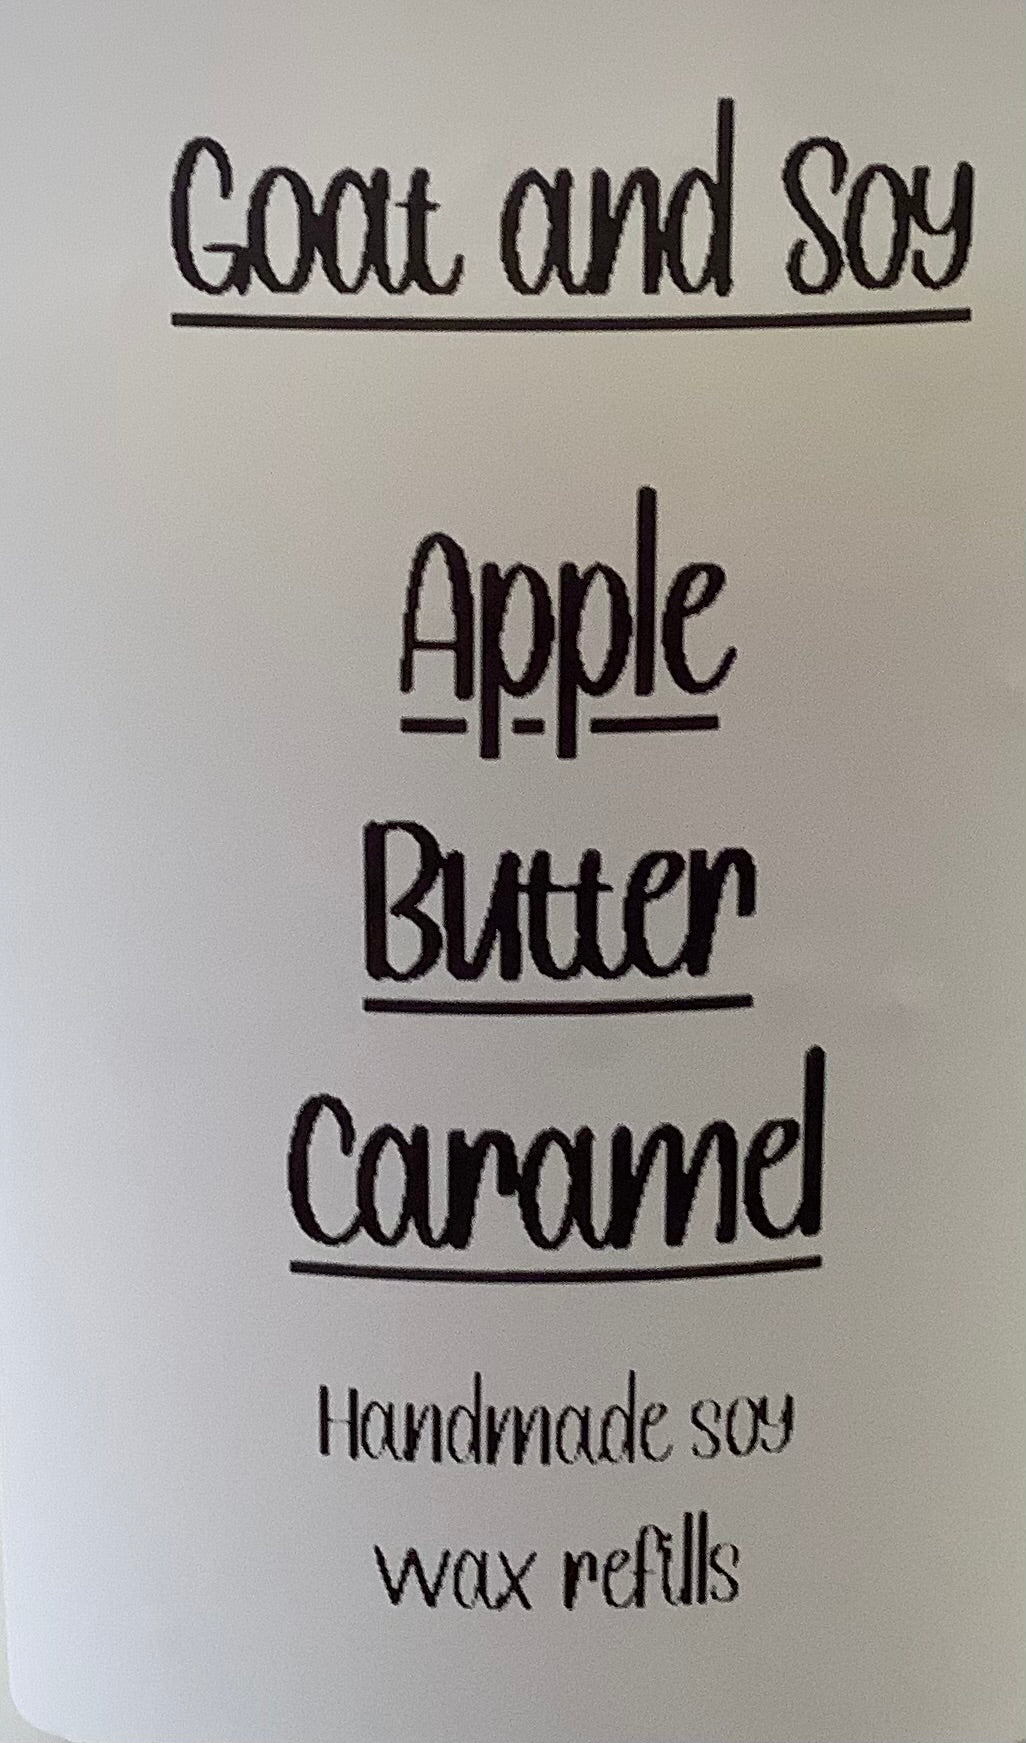 Goat and Soy
Apple
Butter
Caramel
Handmade soy
wax refills